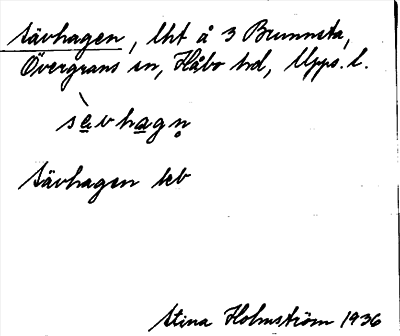 Sävhagen, lht å 3 Brunnsta,
Övergrans sn, Håbo hd, Upps. l.
sè̱vha̱gn̥
Sävhagen leb
Stina Holmström 1936